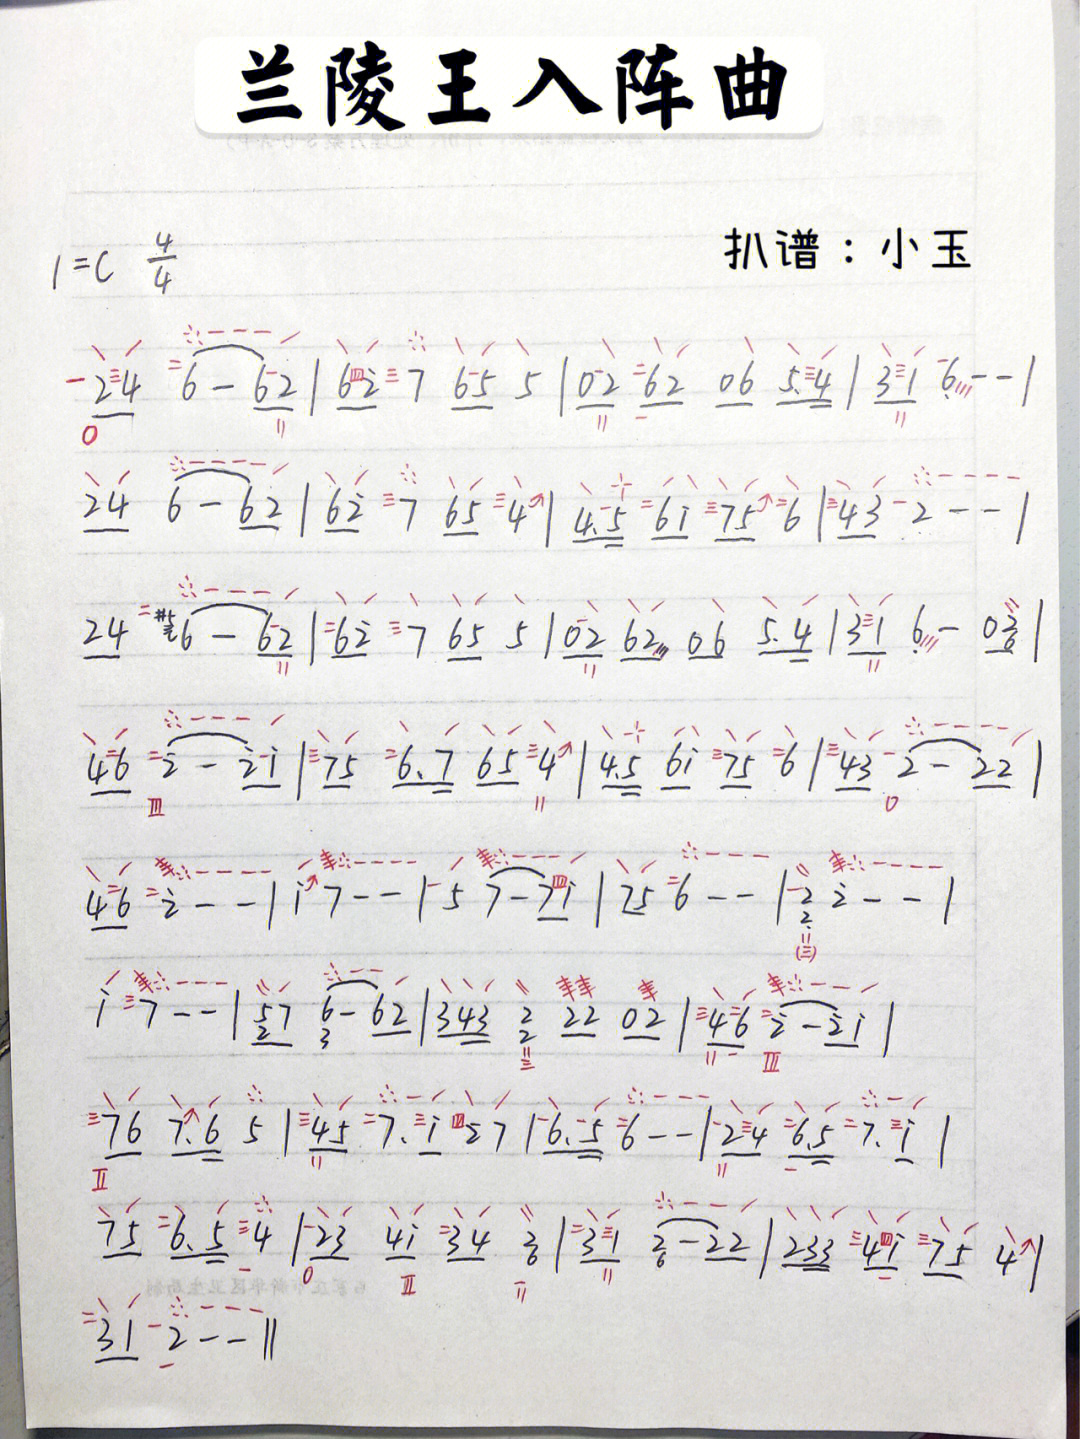 兰陵王入阵曲
扒谱：小玉
1=C 4/4
24 6 - 62 | 6i 7 65 5 | 02 62 06 5.4 | 31 6 - - |
24 6 - 62 | 62 7 65 4 | 4.5 61 75 6 | 43 2 - - |
24 6 - 62 | 62 7 65 5 | 02 62 06 5.4 | 31 6 - 02 |
46 2 - 21 | 75 6.7 65 4 | 4.5 61 75 6 | 43 2 - 22 |
46 2 - - | 1 7 - - | 5 7 - 71 | 75 6 - - | 2 2 - - |
1 7 - - | 57 6 - 62 | 343 2 22 02 | 46 2 - 21 |
76 7.6 5 | 45 7. 1 27 | 6.5 6 - - | 24 6.5 7. 1 |
75 6.5 4 | 23 41 34 2 | 31 2 - 22 | 233 41 75 4 |
31 2 - - ‖